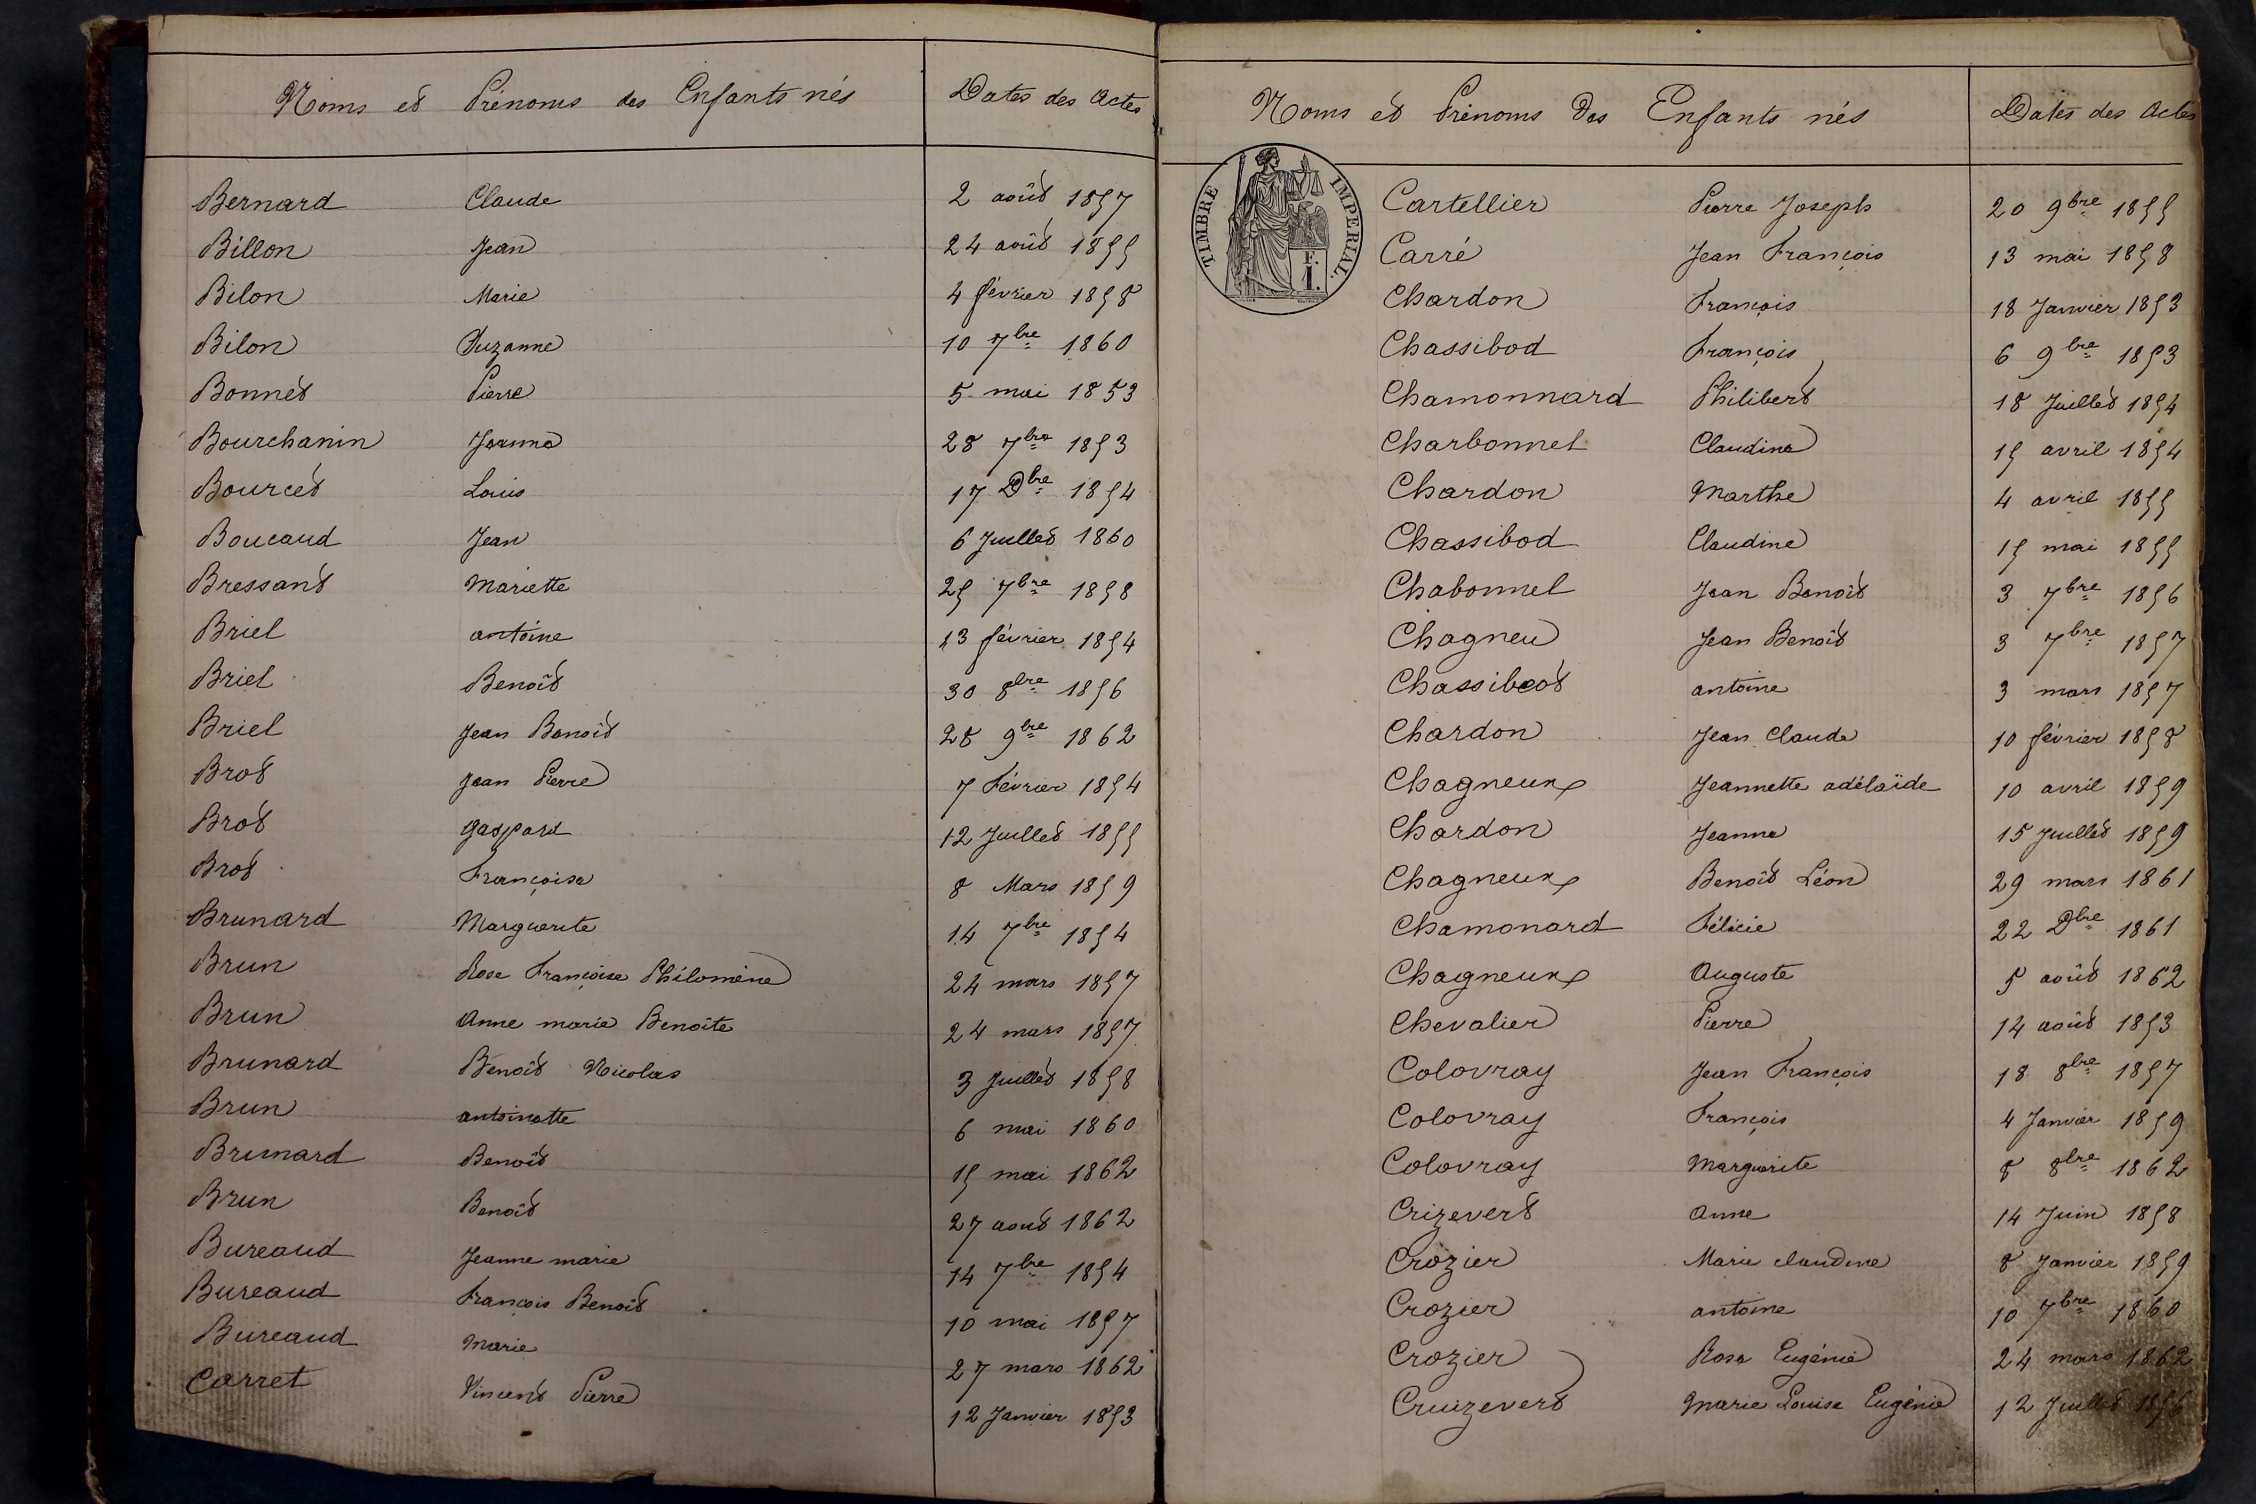 Noms et Prénoms des Enfants nés Dates des Actes
Bernard Claude 2 août 1857
Billon Jean 24 août 1855
Bilon Marie 4 février 1858
Bilon Suzanne 10 7bre 1860
Bonnet Pierre 5 mai 1853
Bourchanin Jeanne 28 7bre 1853
Bourcet Louis 17 Dbre 1854
Boucaud Jean 6 Juillet 1860
Bressant Mariette 25 7bre 1858
Briel antoine 23 février 1854
Briel Benoît 30 8bre 1856
Briel Jean Benoît 28 9bre 1862
Brot Jean Pierre 7 Février 1854
Brot gaspard 12 Juillet 1855
Brot Françoise 8 Mars 1859
Brunard Marguerite 14 7bre 1854
Brun Rose Françoise Philomène 24 mars 1857
Brun Anne marie Benoîte 24 mars 1857
Brunard Benoît Nicolas 3 Juillet 1858
Brun antoinette 6 mai 1860
Brunard Benoît 15 mai 1862
Brun Benoît 27 aout 1862
Bureaud Jeanne marie 14 7bre 1854
Bureaud François Benoît 10 mai 1857
Bureaud Marie 27 mars 1862
Carret Vincent Pierre 12 Janvier 1853
Noms et Prénoms Des Enfants nés Dates des Actes
TIMBRE IMPERIAL.
F.
1.
Cartellier Pierre Joseph 20 9bre 1855
Carré Jean François 13 mai 1858
Chardon François 18 Janvier 1853
Chassibod François 6 9bre 1853
Chamonnard Philibert 18 Juillet 1854
Charbonnel Claudine 15 avril 1854
Chardon Marthe 4 avril 1855
Chassibod Claudine 15 mai 1855
Chabonnel Jean Benoît 3 7bre 1856
Chagneu Jean Benoît 3 7bre 1857
Chassibcot antoine 3 mars 1857
Chardon Jean Claude 10 février 1858
Chagneux Jeannette adélaïde 10 avril 1859
Chardon Jeanne 15 Juillet 1859
Chagneux Benoît Léon 29 mars 1861
Chamonard Félicie 22 Dbre 1861
Chagneux Auguste 5 août 1862
Chevalier Pierre 14 août 1853
Colovray Jean François 18 8bre 1857
Colovray François 4 Janvier 1859
Colovray Marguerite 8 8bre 1862
Crizevert Anne 14 Juin 1858
Crozier Marie claudine 8 Janvier 1859
Crozier antoine 10 7bre 1860
Crozier Rose Eugénie 24 mars 1862
Cruizevert Marie Louise Eugénie 12 Juillet 1856